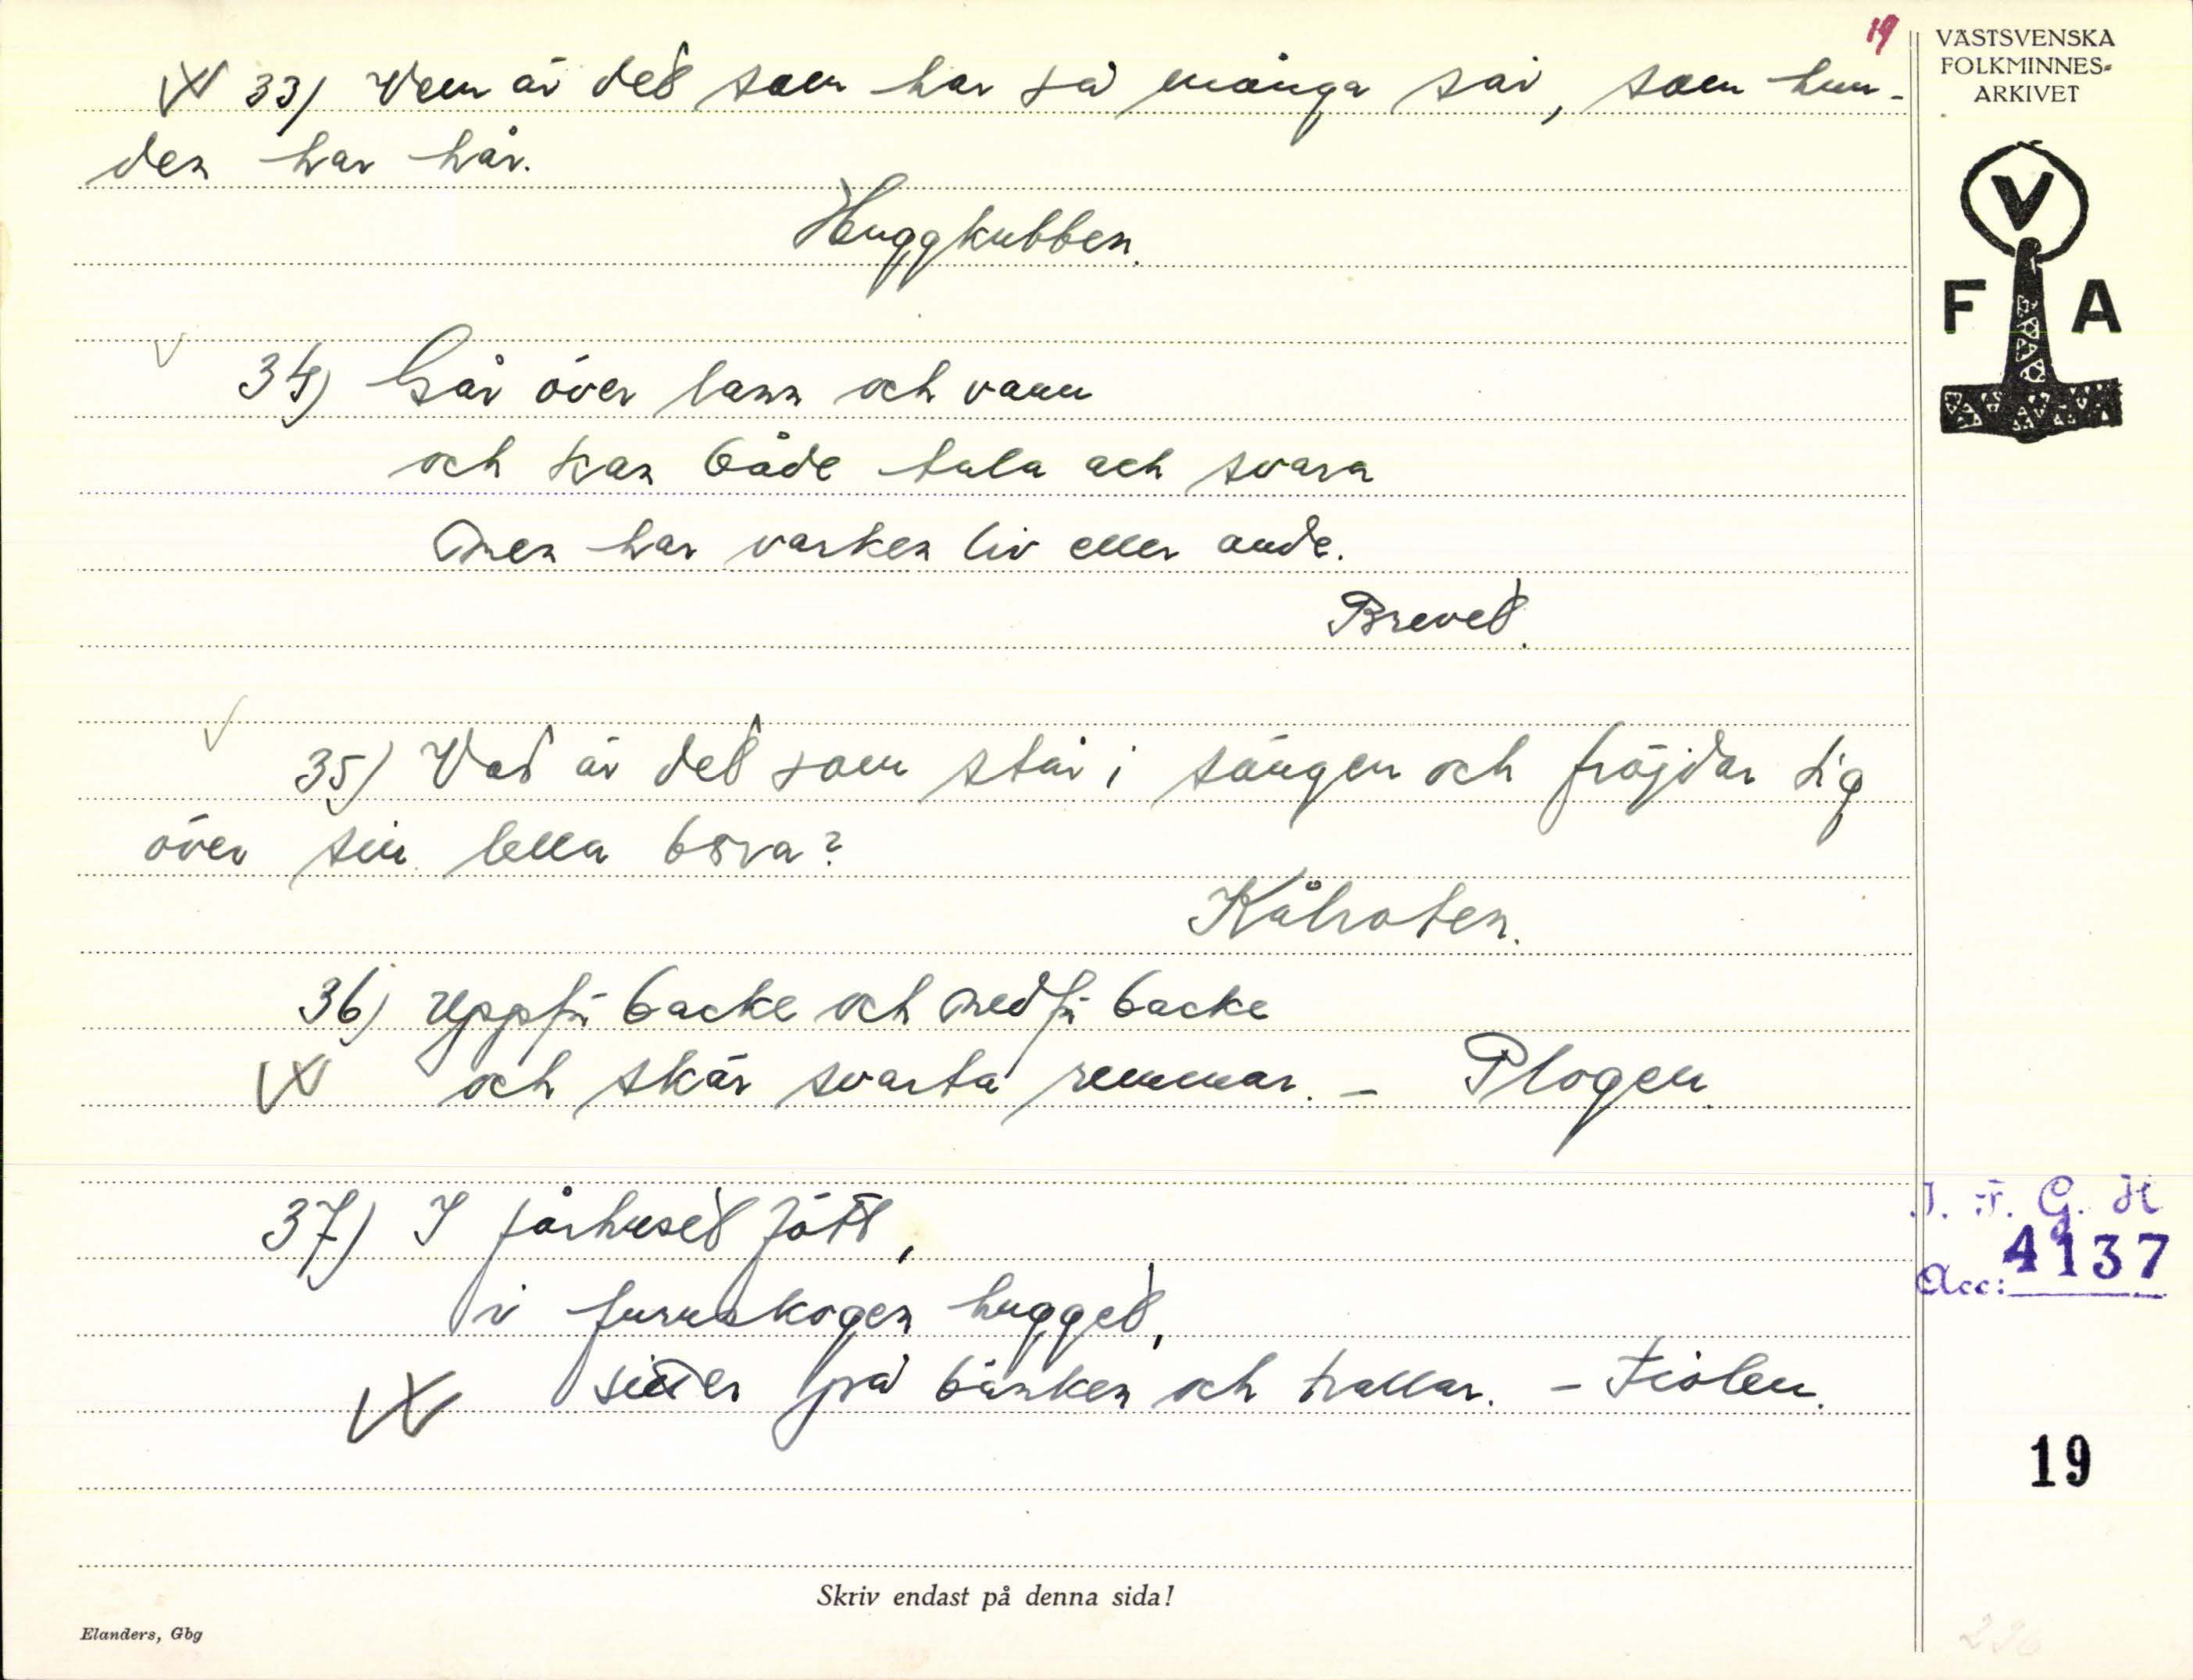 19
VÄSTSVENSKA
FOLKMINNES-
ARKIVET
V
F A
33) Vem är det som har så många sår, som hun-
den har hår.
Huggkubben.
34) Går över lann och vann
och kan både tala och svara
men har varken liv eller ande.
Brevet.
35) Vad är det som står i sängen och fröjdar sig
över sin lella
Kålroten.
36) Uppför backe och nedför backe
och skär svarta remmar. – Plogen.
37) I fårhuset fött,
i furuskogen hugget,
sitter på bänken och trallar. – Fiolen.
I. F. G. H
Acc: 4137
19
Skriv endast på denna sida!
Elanders, Gbg